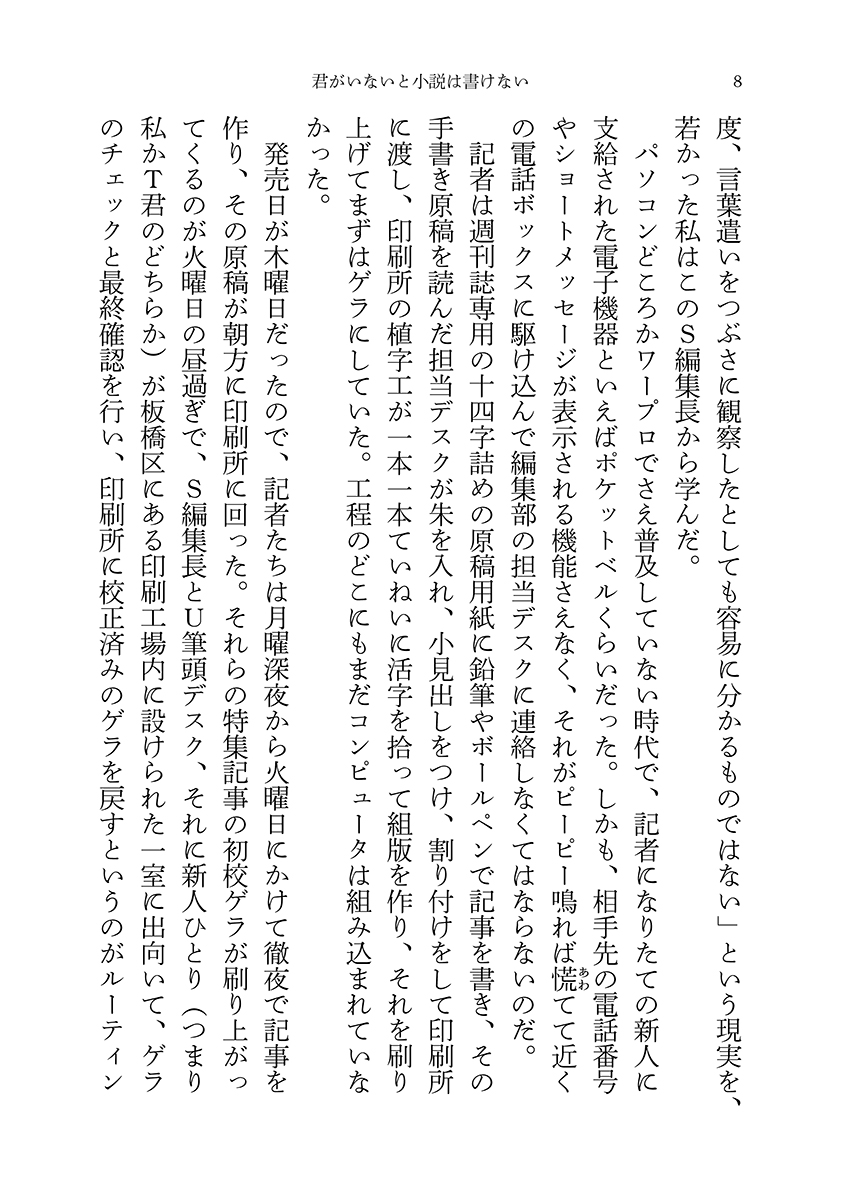 君がいないと小説は書けない
8
度、言葉遣いをつぶさに観察したとしても容易に分かるものではない」という現実を、
若かった私はこのＳ編集長から学んだ。
パソコンどころかワープロでさえ普及していない時代で、記者になりたての新人に
支給された電子機器といえばポケットベルくらいだった。しかも、相手先の電話番号
やショートメッセージが表示される機能さえなく、それがピーピー鳴れば慌てて近く
あわ
の電話ボックスに駆け込んで編集部の担当デスクに連絡しなくてはならないのだ。
記者は週刊誌専用の十四字詰めの原稿用紙に鉛筆やボールペンで記事を書き、その
手書き原稿を読んだ担当デスクが朱を入れ、小見出しをつけ、割り付けをして印刷所
に渡し、印刷所の植字工が一本一本ていねいに活字を拾って組版を作り、それを刷り
上げてまずはゲラにしていた。工程のどこにもまだコンピュータは組み込まれていな
かった。
発売日が木曜日だったので、記者たちは月曜深夜から火曜日にかけて徹夜で記事を
作り、その原稿が朝方に印刷所に回った。それらの特集記事の初校ゲラが刷り上がっ
てくるのが火曜日の昼過ぎで、Ｓ編集長とＵ筆頭デスク、それに新人ひとり（つまり
私かＴ君のどちらか）が板橋区にある印刷工場内に設けられた一室に出向いて、ゲラ
のチェックと最終確認を行い、印刷所に校正済みのゲラを戻すというのがルーティン